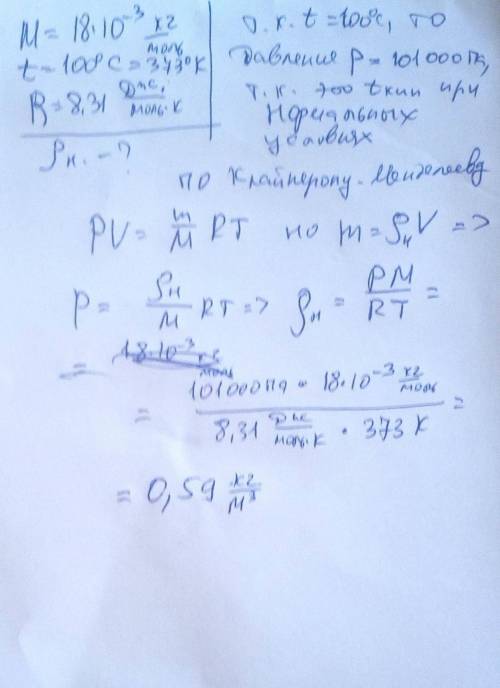 M = 18·10⁻³ кг/моль
t = 100°C = 373°K
R = 8,31 Дж/моль·К
ρн. - ?
т.к. t = 100°C, то
давление P = 101000Па,
т.к. это tкип при
нормальных
условиях
по Клайперону-Менделееву
PV = m/M RT но m = ρнV =>
P = ρн/M RT => ρн = PM/RT =
= 18·10⁻³ кг/моль
= 101000Па · 18·10⁻³ кг/моль / 8,31 Дж/моль·К · 373 К =
= 0,59 кг/м³